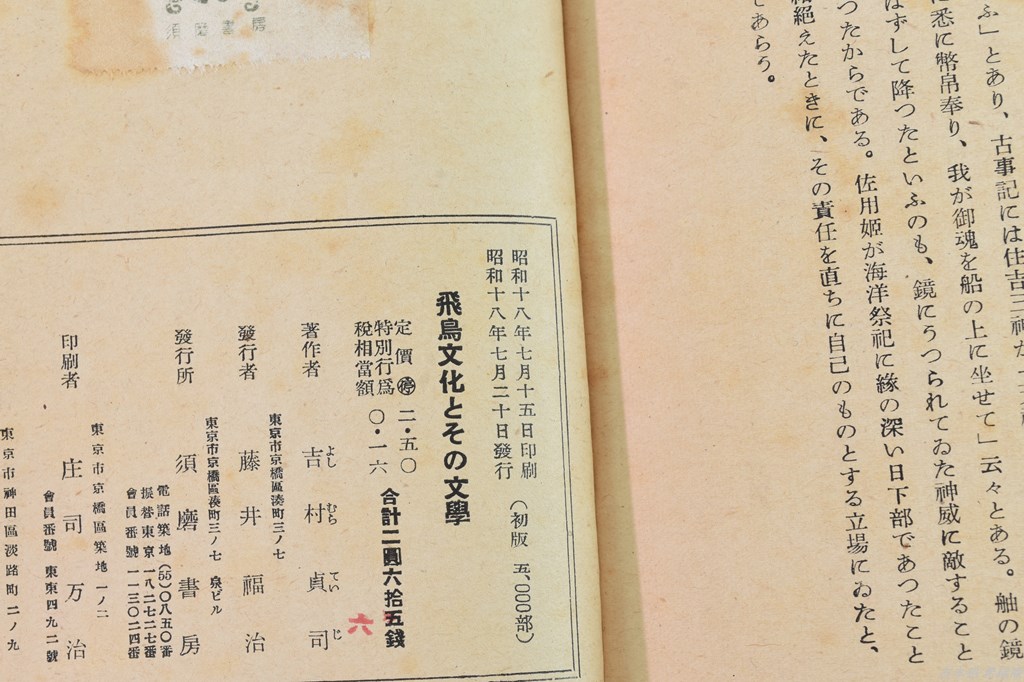 ふ」とあり、古事記には住吉三神
悉に幣帛奉り、我が御魂を船の上に坐せて」云々とある。舳の鏡
はずして降つたといふのも、鏡にうつられてゐた神威に敵すること
つたからである。佐用姫が海洋祭祀に緣の深い日下部であつたこと
絕えたときに、その責任を直ちに自己のものとする立場にゐたと、
であらう。
須磨書房
昭和十八年七月十五日印刷
昭和十八年七月二十日發行
(初版 五,〇〇〇部)
飛鳥文化とその文學
定價 停 二・五〇
特別行爲稅相當額 〇・一六
合計二圓六拾五錢
六
著作者 吉村貞司
よし むら てい じ
東京市京橋區湊町三ノ七
發行者 藤井福治
東京市京橋區湊町三ノ七 泉ビル
發行所 須磨書房
電話築地(55)〇八五〇番
振替東京一八二七二七番
會員番號一一三〇二四番
東京市京橋區築地一ノ二
印刷者 庄司万治
會員番號 東東四九二號
東京市神田區淡路町二ノ九